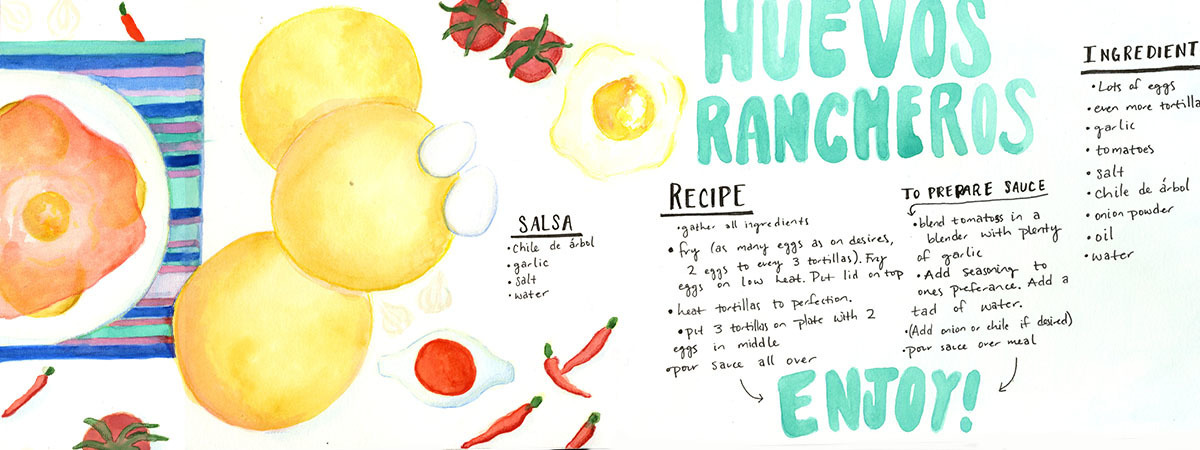 HUEVOS
RANCHEROS
SALSA
• Chile de árbol
• garlic
• salt
• water
RECIPE
• gather all ingredients
• fry (as many eggs as on desires,
2 eggs to every 3 tortillas). Fry
eggs on low heat. Put lid on top
• heat tortillas to perfection.
• put 3 tortillas on plate with 2
eggs in middle
• pour sauce all over
TO PREPARE SAUCE
• blend tomatoss in a
blender with plenty
of garlic
• Add seasoning to
ones preferance. Add a
tad of water.
• (Add onion or chile if desired)
• pour sauce over meal
ENJOY!
INGREDIENT
• Lots of eggs
• even more tortilla
• garlic
• tomatoes
• salt
• chile de árbol
• onion powder
• oil
• water